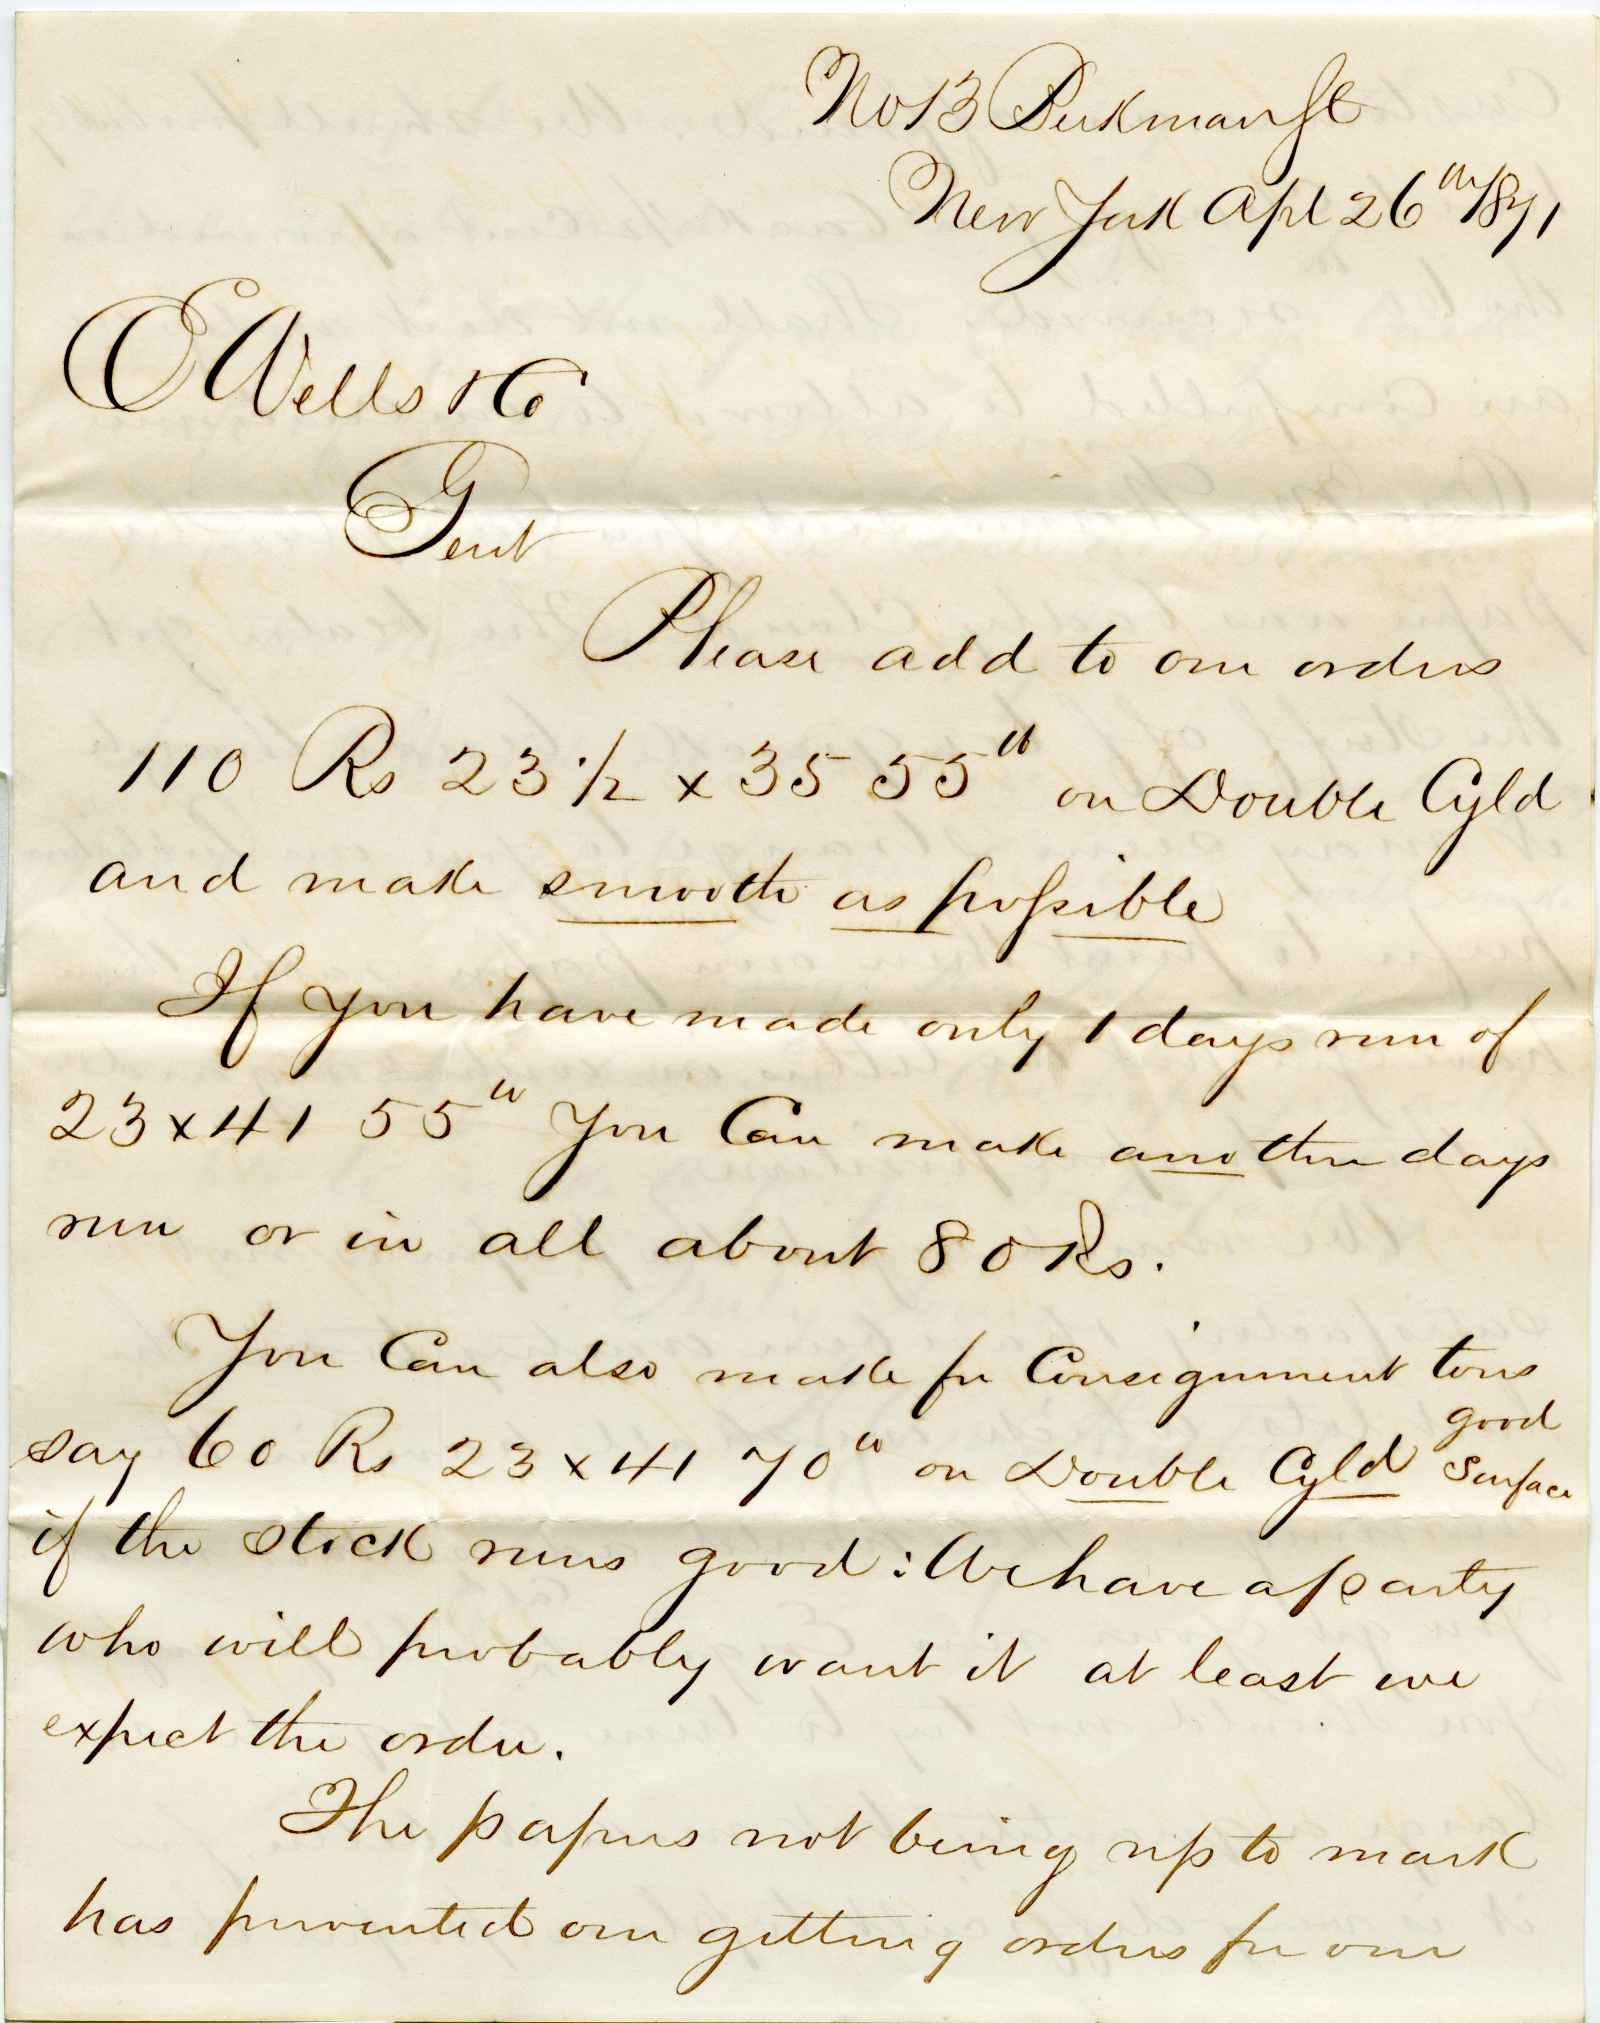 No 13 Beekman St
New York Apl 26th 1871
E Wells & Co
Gent
Please add to our orders
110 Rs 23 1/2 x 35 55lb on Double Cyld
and make smooth as possible
If you have made only 1 days run of
23 x 41 55lb You Can make another days
run or in all about 80 Rs.
You Can also make for Consignment tons
say 60 Rs 23 x 41 70lb on Double Cyld good
Surface
if the stock runs good : We have a party
who will probably want it at least we
expect the order.
The papers not being up to mark
has prevented our getting orders for our